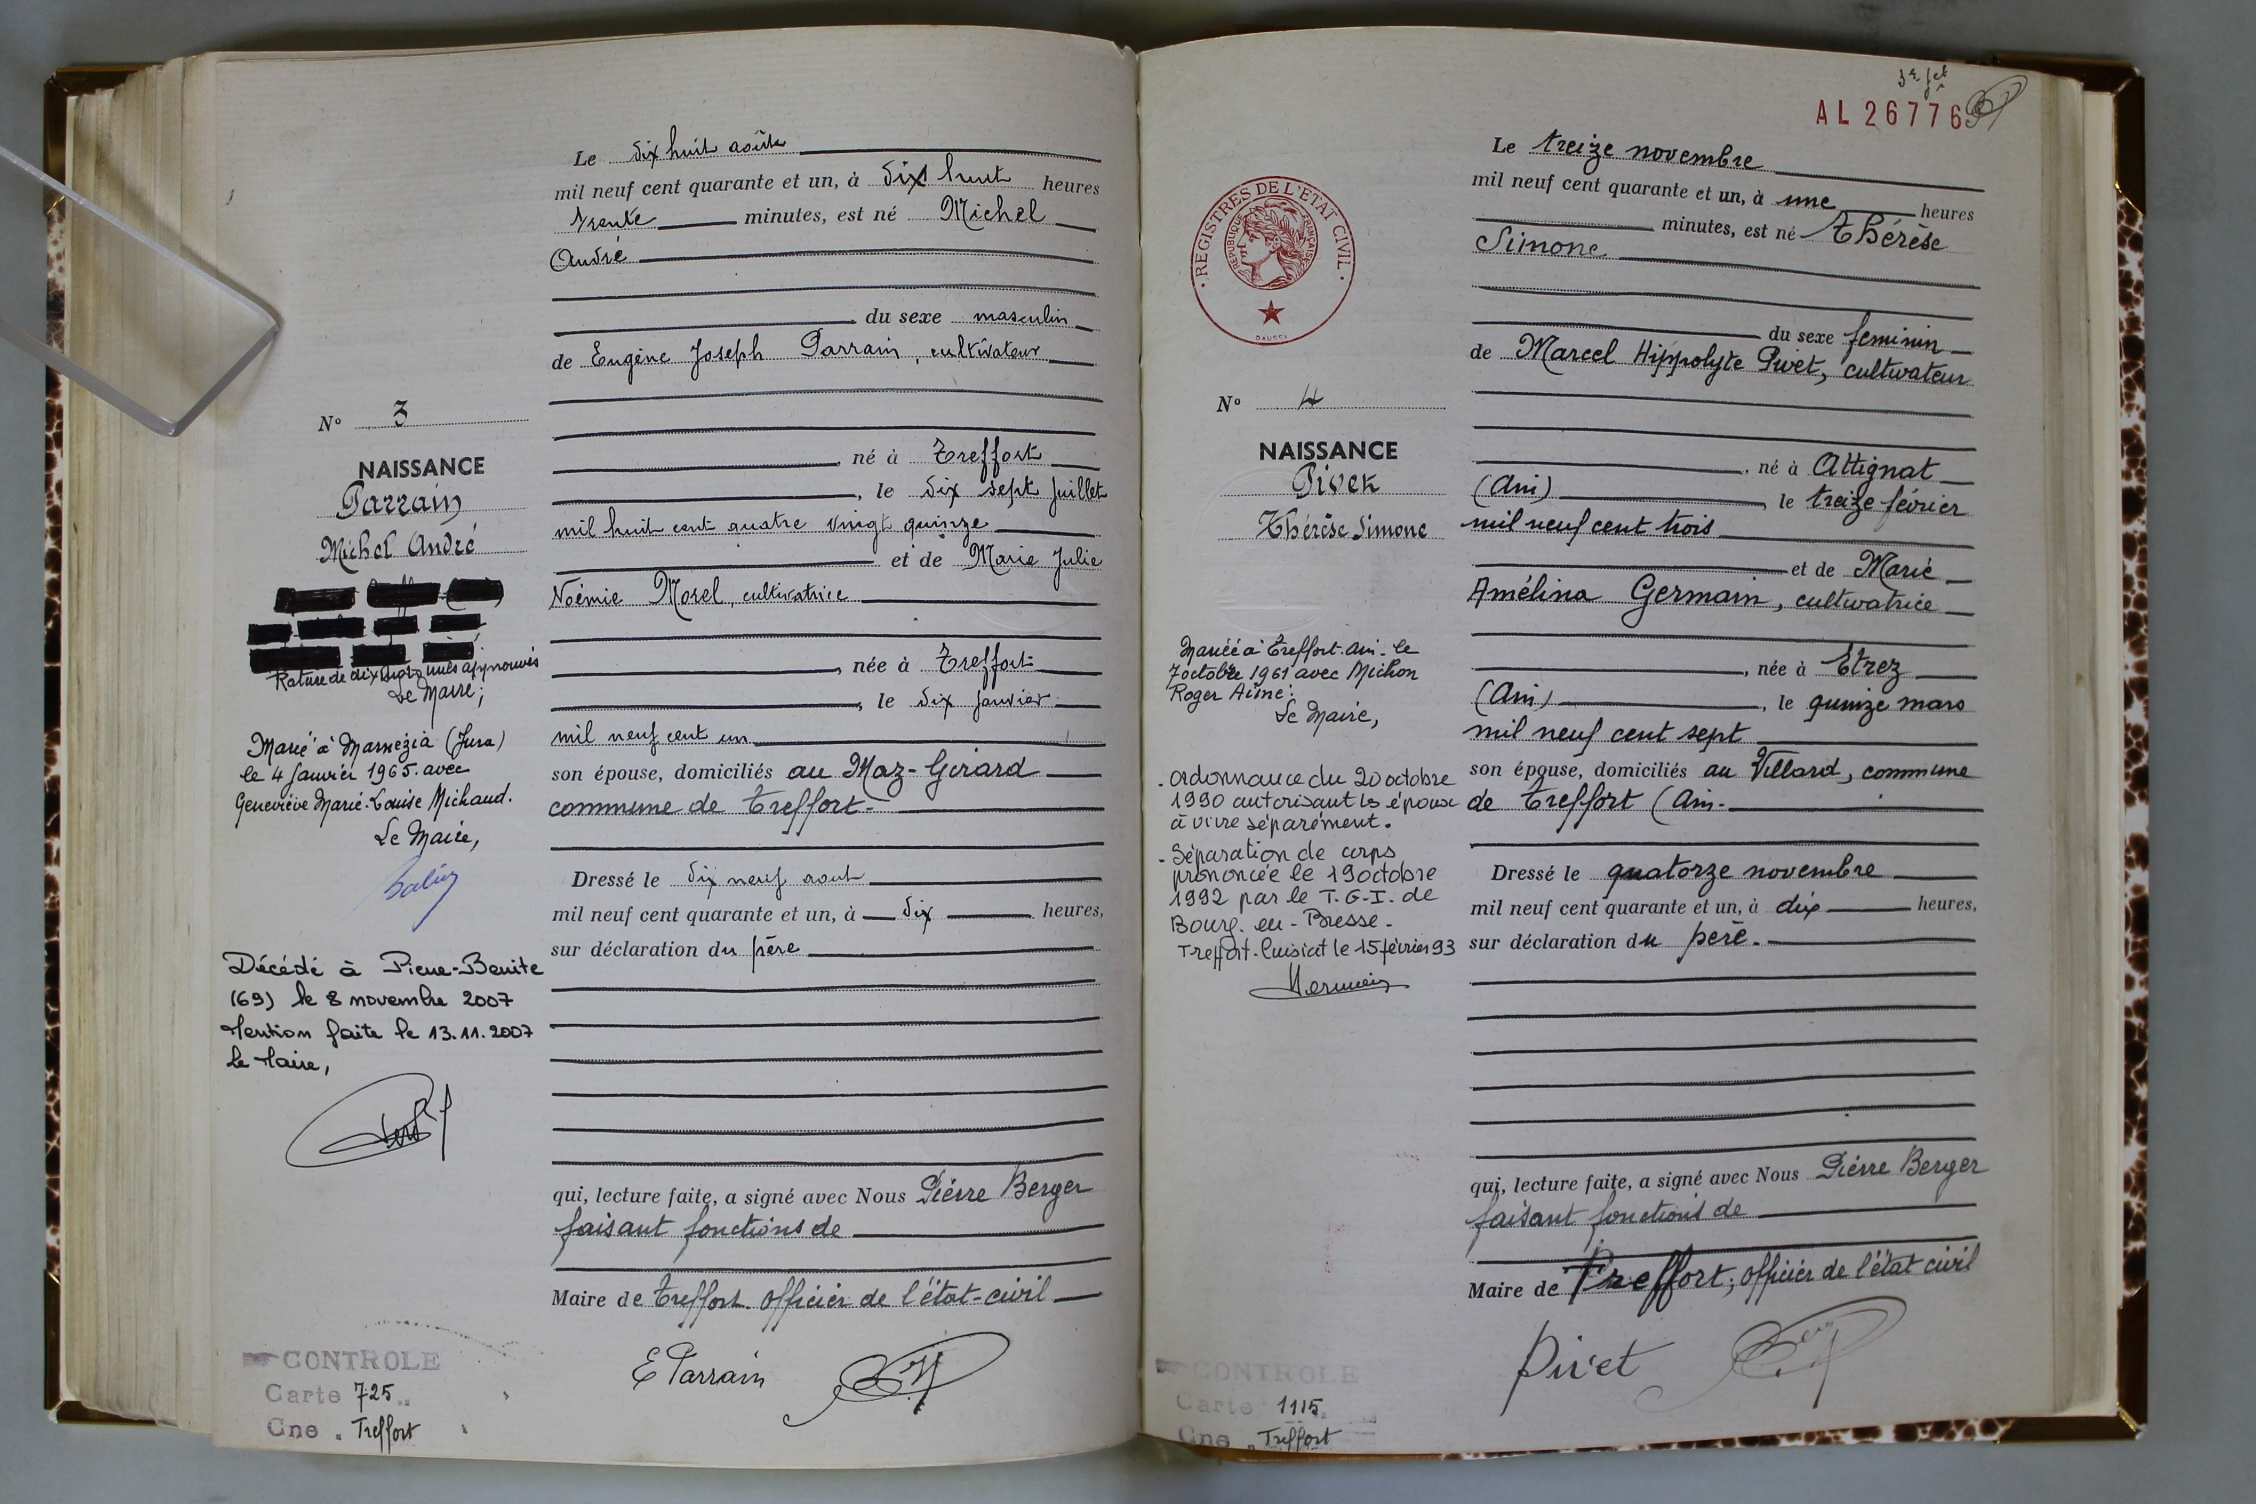 Le dix huit août
mil neuf cent quarante et un, à dix huit heures
trente minutes, est né Michel
André
du sexe masculin
de Eugène Joseph Parrain, cultivateur
né à Treffort
, le dix sept juillet
mil huit cent quatre vingt quinze
et de Marie Julie
Noémie Morel, cultivatrice
, née à Treffort
, le dix janvier
mil neuf cent un
son épouse, domiciliés au Maz-Girard
commune de Treffort-
Dressé le dix neuf aout
mil neuf cent quarante et un, à dix heures,
sur déclaration du père
qui, lecture faite, a signé avec Nous Piérre Berger
faisant fonctions de
Maire de Treffort officier de l'état-civil
E Parrain
N° 3
NAISSANCE
Parrain
Michel André
Rature de dix mots nuls approuvés
Le Maire;
Marié à Marnézia (Jura)
le 4 Janvier 1965. avec
Geneviève Marie-Louise Michaud.
Le Maire,
Décédé à Pierre-Bénite
(69) le 8 novembre 2007
Mention faite le 13.11.2007
Le Maire,
CONTROLE
Carte 725
Cne. Treffort
3e fet
AL 26776
REGISTRES DE L'ETAT CIVIL
REPUBLIQUE FRANCAISE
Le treize novembre
mil neuf cent quarante et un, à une heures
minutes, est né Thérèse
Simone
du sexe feminin
de Marcel Hippolyte Pivet, cultivateur
né à Attignat
(Ain) le treize février
mil neuf cent trois
et de Marie
Amélina Germain, cultivatrice
, née à Etrez
(Ain) , le quinze mars
mil neuf cent sept
son épouse, domiciliés au Villard, commune
de Treffort (Ain-
Dressé le quatorze novembre
mil neuf cent quarante et un, à dix heures,
sur déclaration du père.
qui, lecture faite, a signé avec Nous Piérre Berger
faisant fonctions de
Maire de Treffort; officier de l'état civil
Pivet
N° 4
NAISSANCE
Pivet
Thérèse Simone
Mariée à Treffort-Ain- le
7 octobre 1961 avec Michon
Roger Aimé.
Le Maire,
- Ordonnance du 20 octobre
1990 autorisant les époux
à vivre séparément.
- Séparation de corps
prononcée le 19 octobre
1992 par le T.G.I. de
Bourg-en-Bresse.
Treffort-Cuisiat le 15 février 93
CONTROLE
Carte 1115
Cne. Treffort